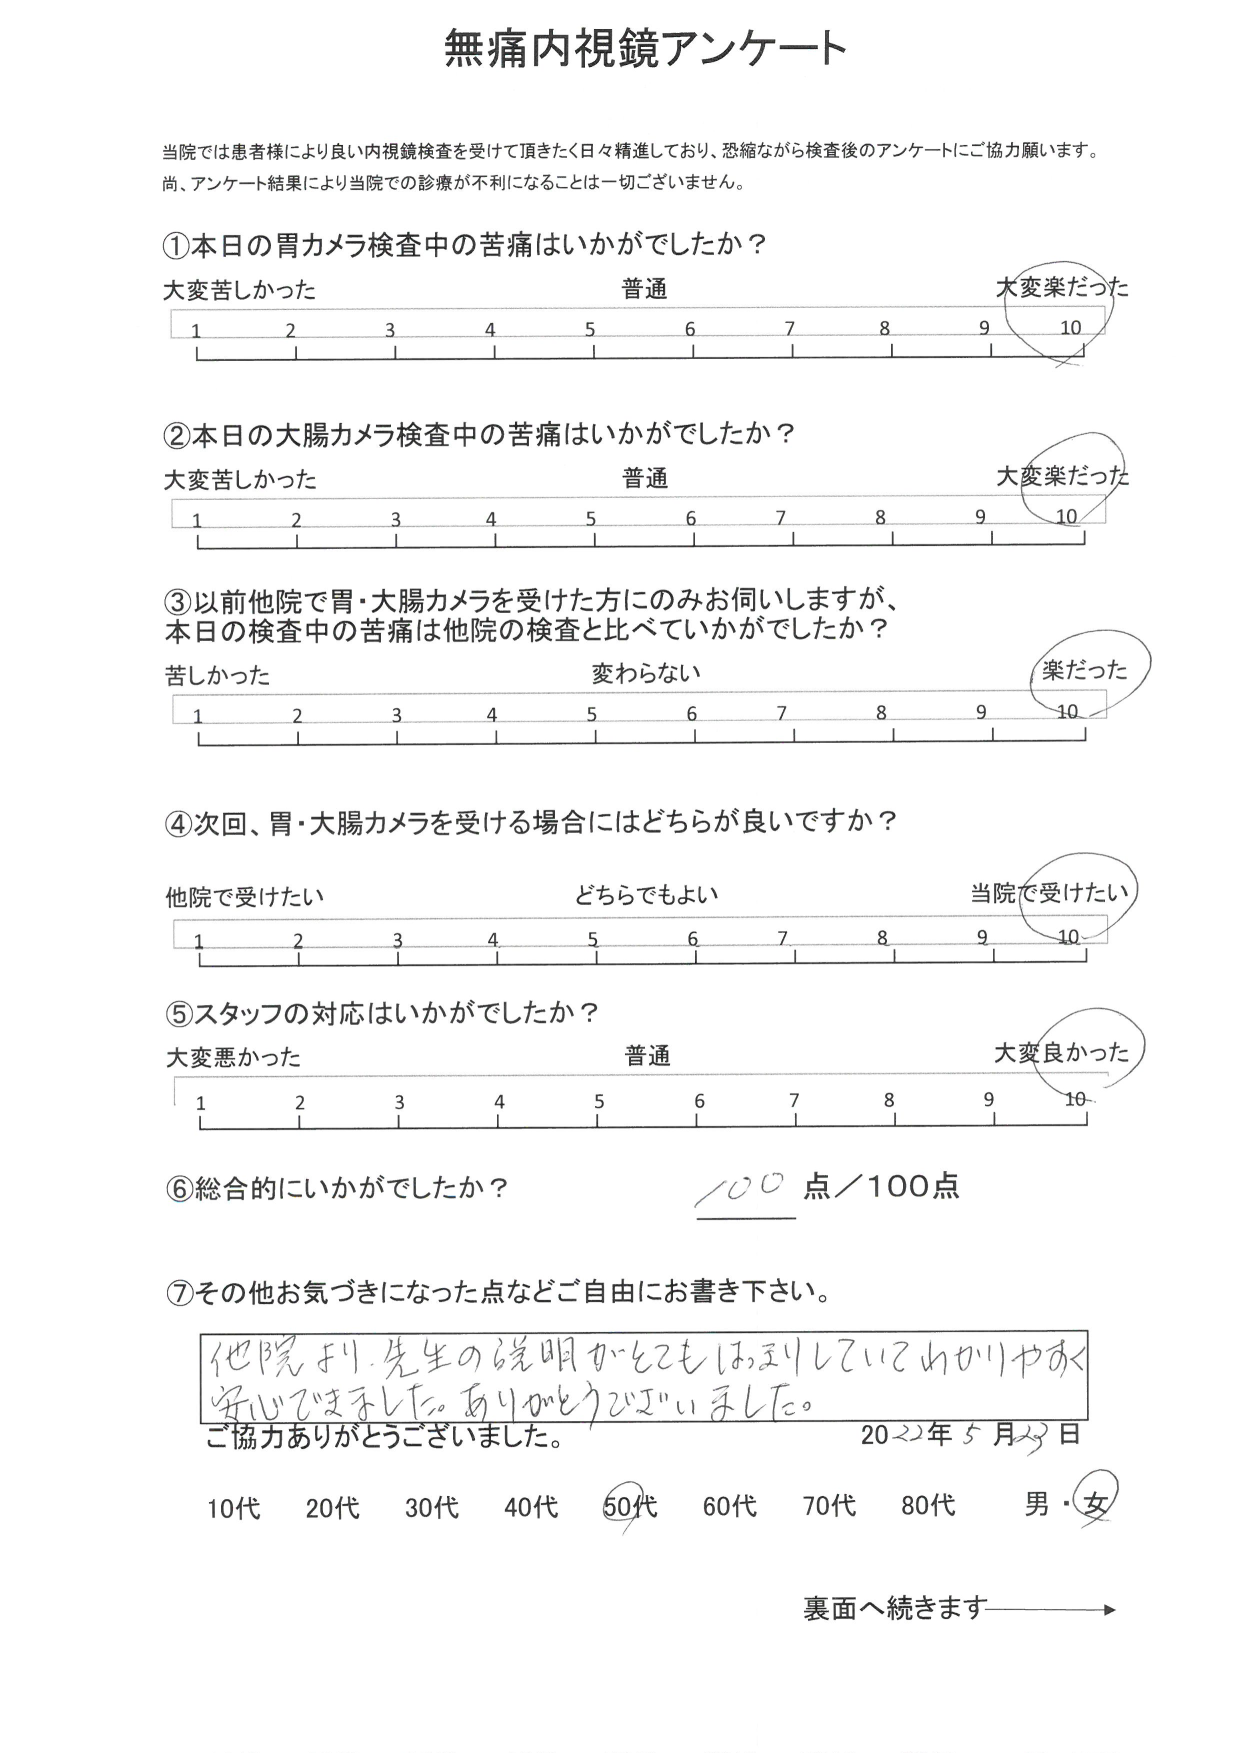 無痛内視鏡アンケート
当院では患者様により良い内視鏡検査を受けて頂きたく日々精進しており、恐縮ながら検査後のアンケートにご協力願います。
尚、アンケート結果により当院での診療が不利になることは一切ございません。
①本日の胃カメラ検査中の苦痛はいかがでしたか？
大変苦しかった 普通 大変楽だった
1 2 3 4 5 6 7 8 9 10
②本日の大腸カメラ検査中の苦痛はいかがでしたか？
大変苦しかった 普通 大変楽だった
1 2 3 4 5 6 7 8 9 10
③以前他院で胃・大腸カメラを受けた方にのみお伺いしますが、
本日の検査中の苦痛は他院の検査と比べていかがでしたか？
苦しかった 変わらない 楽だった
1 2 3 4 5 6 7 8 9 10
④次回、胃・大腸カメラを受ける場合にはどちらが良いですか？
他院で受けたい どちらでもよい 当院で受けたい
1 2 3 4 5 6 7 8 9 10
⑤スタッフの対応はいかがでしたか？
大変悪かった 普通 大変良かった
1 2 3 4 5 6 7 8 9 10
⑥総合的にいかがでしたか？ 100 点／100点
⑦その他お気づきになった点などご自由にお書き下さい。
他院より、先生の説明がとてもはっきりしていてわかりやすく
安心できました。ありがとうございました。
ご協力ありがとうございました。 2022年 5 月23日
10代 20代 30代 40代 50代 60代 70代 80代 男・女
裏面へ続きます